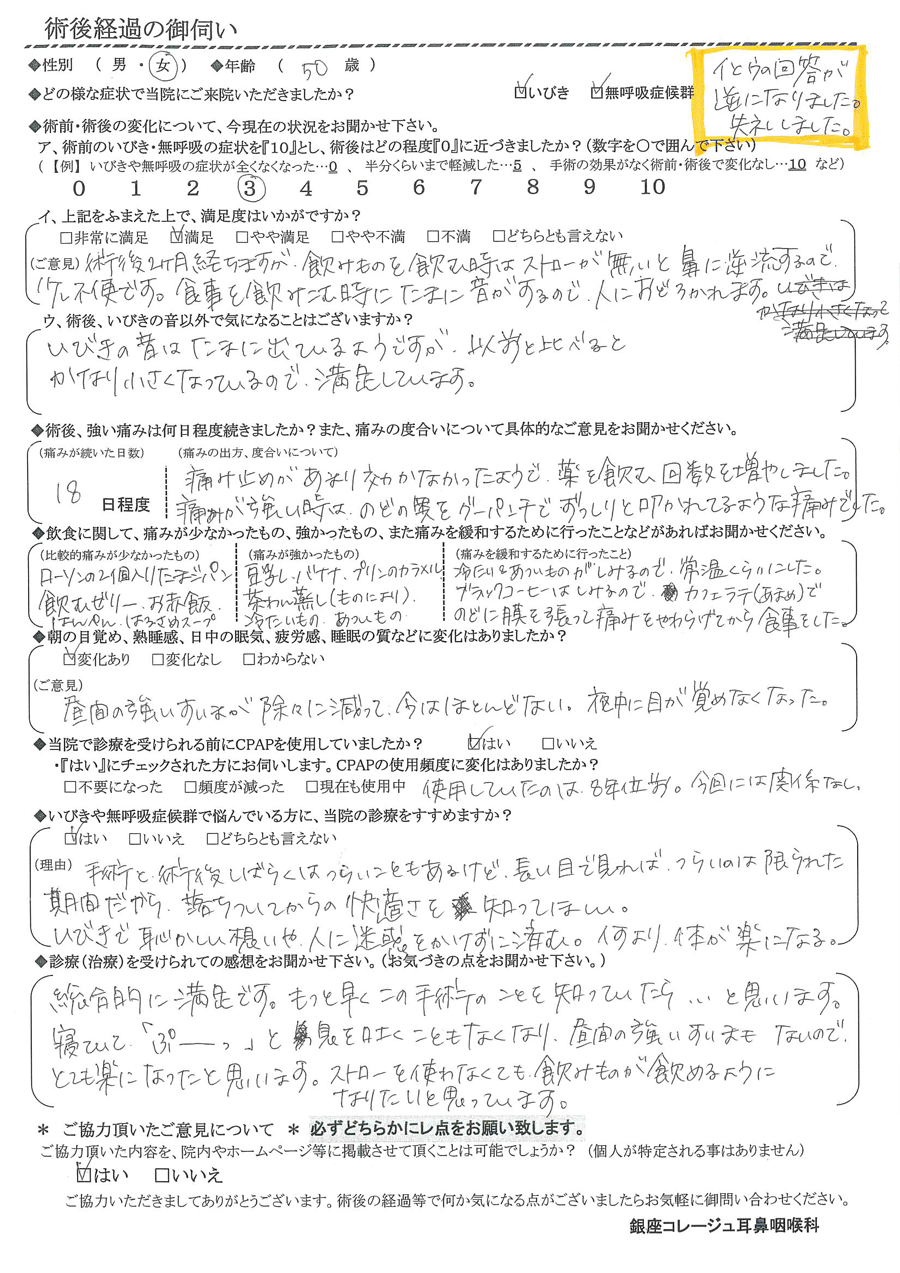 術後経過の御伺い
◆性別 （ 男 ・ 女 ） ◆年齢 （ 50 歳 ）
◆どの様な症状で当院にご来院いただきましたか？ ☑いびき ☑無呼吸症候群
イとウの回答が
逆になりました。
失礼しました。
◆術前・術後の変化について、今現在の状況をお聞かせ下さい。
ア、術前のいびき・無呼吸の症状を『10』とし、術後はどの程度『0』に近づきましたか？（数字を○で囲んで下さい）
（【例】 いびきや無呼吸の症状が全くなくなった…0 、 半分くらいまで軽減した…5 、 手術の効果がなく術前・術後で変化なし…10 など）
0 1 2 3 4 5 6 7 8 9 10
イ、上記をふまえた上で、満足度はいかがですか？
□非常に満足 ☑満足 □やや満足 □やや不満 □不満 □どちらとも言えない
（ご意見） 術後2ヶ月経ちますが、飲みものを飲む時はストローが無いと鼻に逆流するので、
少し不便です。食事を飲みこむ時にたまに音がするので、人におどろかれます。いびきは
かなり小さくなって
満足しています。
ウ、術後、いびきの音以外で気になることはございますか？
いびきの音はたまに出ているようですが、以前と比べると
かなり小さくなっているので、満足しています。
◆術後、強い痛みは何日程度続きましたか？また、痛みの度合いについて具体的なご意見をお聞かせください。
（痛みが続いた日数） （痛みの出方、度合いについて）
痛み止めがあまり効かなかったようで、薬を飲む回数を増やしました。
18 日程度 痛みが強い時は、のどの奥をグーパンチでずっしりと叩かれてるような痛みでした。
◆飲食に関して、痛みが少なかったもの、強かったもの、また痛みを緩和するために行ったことなどがあればお聞かせください。
（比較的痛みが少なかったもの） （痛みが強かったもの） （痛みを緩和するために行ったこと）
ローソンの2個入りたまごパン 豆乳、バナナ、プリンのカラメル 冷たい&あついものがしみるので、常温くらいにした。
飲むゼリー、お赤飯、 茶わん蒸し（ものにより）、 ブラックコーヒーはしみるので、カフェラテ（あまめ）で
はんぺん、はるさめスープ 冷たいもの、あついもの のどに膜を張って痛みをやわらげてから食事をした。
◆朝の目覚め、熟睡感、日中の眠気、疲労感、睡眠の質などに変化はありましたか？
☑変化あり □変化なし □わからない
（ご意見）
昼間の強いすいまが除々に減って、今はほとんどない。夜中に目が覚めなくなった。
◆当院で診療を受けられる前にCPAPを使用していましたか？ ☑はい □いいえ
・『はい』にチェックされた方にお伺いします。CPAPの使用頻度に変化はありましたか？
□不要になった □頻度が減った □現在も使用中 使用していたのは、8年位前。今回には関係なし。
◆いびきや無呼吸症候群で悩んでいる方に、当院の診療をすすめますか？
☑はい □いいえ □どちらとも言えない
（理由） 手術と、術後しばらくはつらいこともあるけど、長い目で見れば、つらいのは限られた
期間だから、落ちついてからの快適さを知ってほしい。
いびきで恥かしい想いや、人に迷惑をかけずに済む。何より、体が楽になる。
◆診療（治療）を受けられての感想をお聞かせ下さい。（お気づきの点をお聞かせ下さい。）
総合的に満足です。もっと早くこの手術のことを知っていたら…と思います。
寝ていて、「ぷーーっ」と息を吐くこともなくなり、昼間の強いすいまもないので、
とても楽になったと思います。ストローを使わなくても、飲みものが飲めるように
なりたいと思っています。
＊ ご協力頂いたご意見について ＊ 必ずどちらかにレ点をお願い致します。
ご協力頂いた内容を、院内やホームページ等に掲載させて頂くことは可能でしょうか？ （個人が特定される事はありません）
☑はい □いいえ
ご協力いただきましてありがとうございます。術後の経過等で何か気になる点がございましたらお気軽に御問い合わせください。
銀座コレージュ耳鼻咽喉科